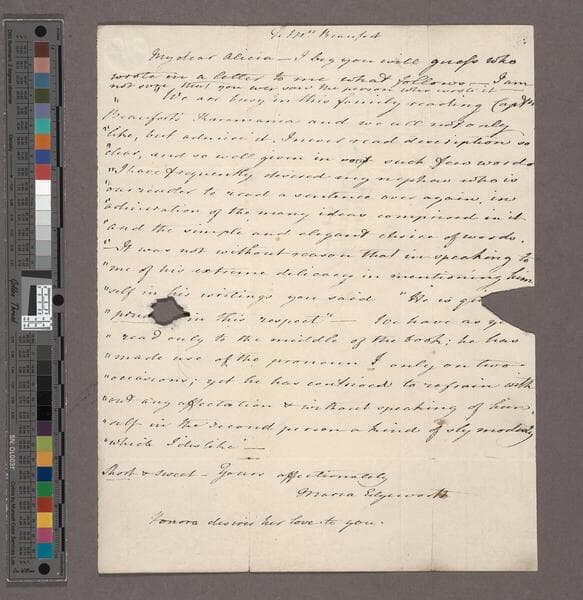 To Mrs Beaufort
My dear Alicia — I beg you will guess who
wrote in a letter to me what follows — I am
not sure that you ever saw the person who wrote it —
" We are busy in this family reading Captn
Beaufort's Karamania and we all not only
"like, but admire it. I never read description so
"clear, and so well given in such few words
"I have frequently desired my nephew who is
"our reader to read a sentence over again, in
"admiration of the many ideas comprised in it
"and the simple and elegant choice of words.
"— It was not without reason that in speaking to
"me of his extreme delicacy in mentioning him
"self in his writings you said "He is
" in this respect" — We have as ye
"read only to the middle of the book; he has
"made use of the pronoun I only on two
"occasions; yet he has contrived to refrain with
"out any affectation & without speaking of him
"self in the second person a kind of sly modesty
"which I dislike" —
Short & sweet — Yours affectionately
Maria Edgeworth
Honora desires her love to you.